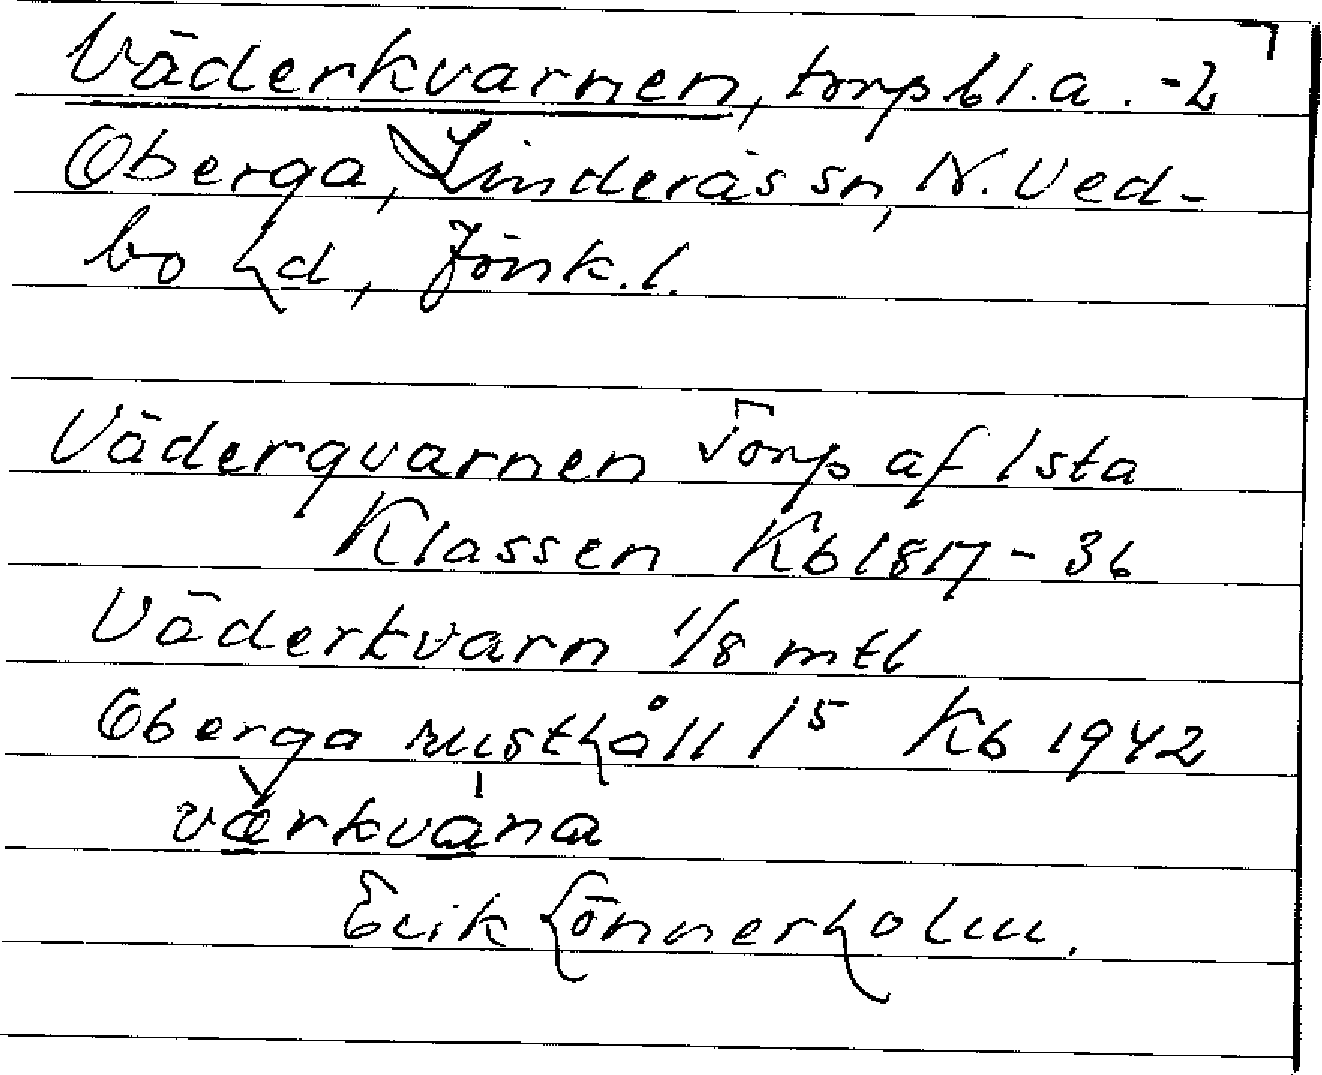 Väderkvarnen, torp bl.a. -2
Oberga, Linderås sn, N. Ved-
bo hd, Jönk.l.
Väderqvarnen Torp af 1sta
Klassen Kb 1817-36
Väderkvarn 1/8 mtl
Oberga rusthåll 1⁵ Kb 1942
värkvàna
Erik Lönnerholm.